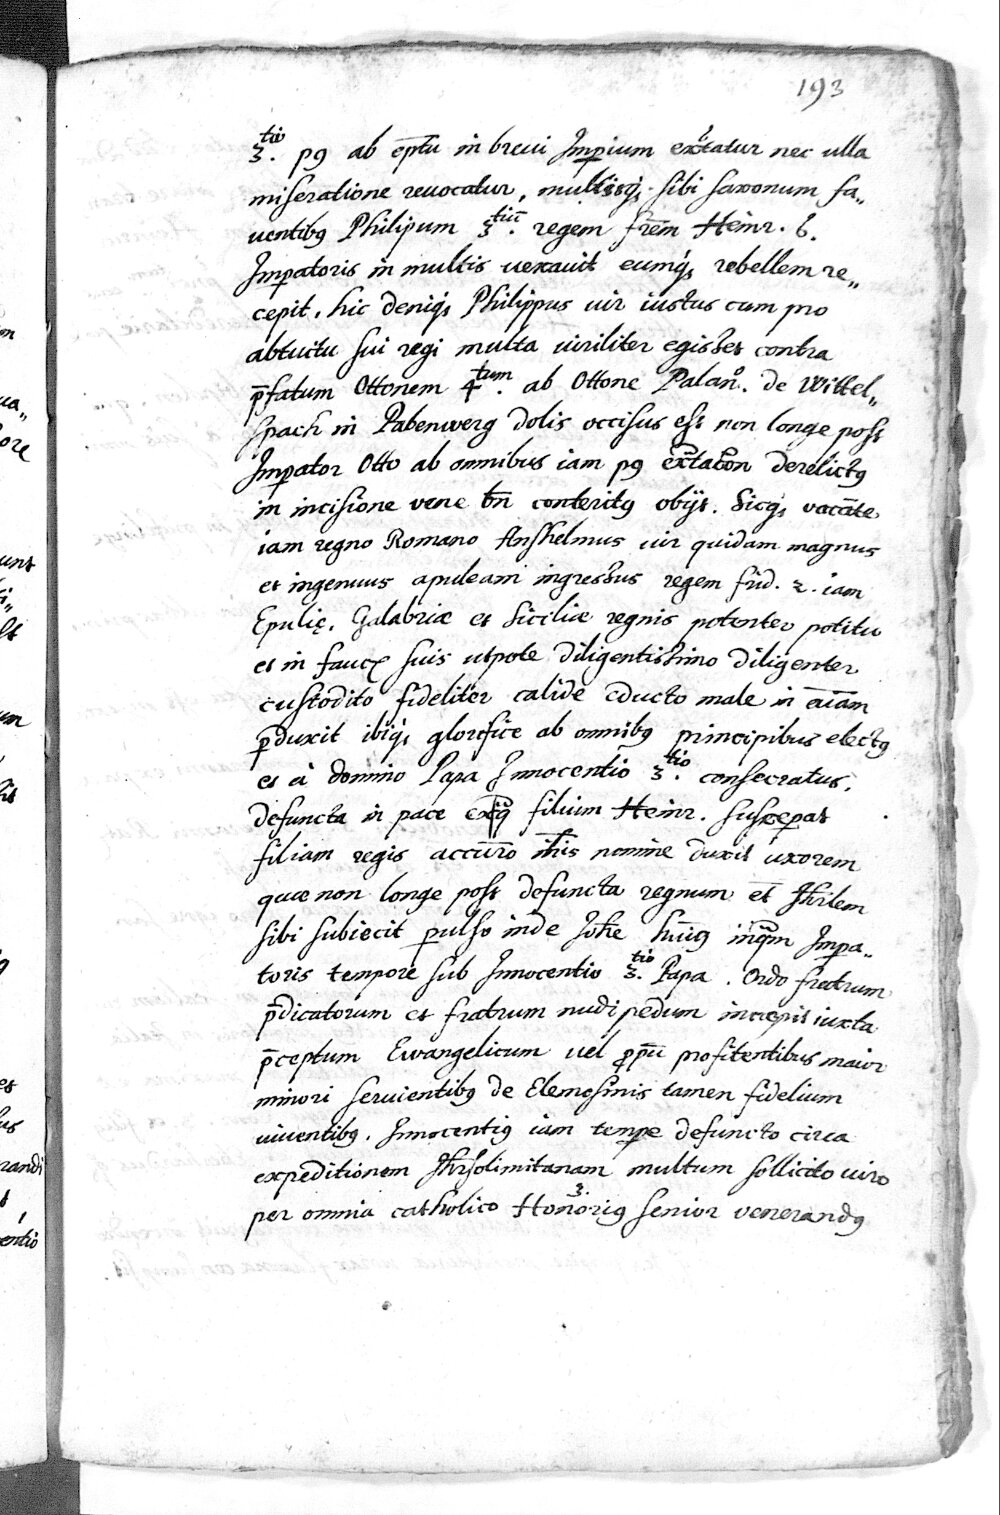 193
3.tio p9 ab eptu in breui Imperium extatur nec ulla
miseratione reuocatur, multisq; sibi saxonum fa„
uentib9 Philipum 3.tiū regem frēm Heinr. 6.
Imperatoris in multis uexauit eumq; rebellem re„
cepit, hic deniq; Philippus uir iustus cum pro
abtuitu sui regi multa uiriliter egisset contra
p̄fatum Ottonem 4.tum ab Ottone Palano. de Wittel„
spach in Pabenwerg dolis occisus est non longe post
Imperator Otto ab omnibus iam p9 derelict9
in incisione vene tn̄ conterit9 obijt. Sicq; vacāte
iam regno Romano Anshelmus uir quidam magnus
et ingenuus apuleam ingressus regem frid. 2. iam
Epulię, Galabriæ et Siciliæ regnis potenter potitu
et in suis utpote diligentissimo diligenter
custodito fideliter calide educto male in
perduxit ibiq; glorifice ab omnib9 principibus elect9
et à domino Papa Innocentio 3.tio consecratus,
defuncta in pace filium Heinr. susceperat
filiam regis nomine duxit uxorem
quæ non longe post defuncta regnum et Jhrlem
sibi subiecit pulso inde Johe inquam Impera„
toris tempore sub Innocentio 3.tio Papa. Ordo fratrum
p̄dicatorum et fratrum nudi pedum incepit iuxta
p̄ceptum Ewangelicum uel profitentibus maior
minori seruientib9 de Elemosinis tamen fidelium
uiuentib9. Innocenti9 iam tempe defuncto circa
expeditionem Jhrsolimitanam multum sollicito uiro
per omnia catholico Honori9 3. senior venerand9